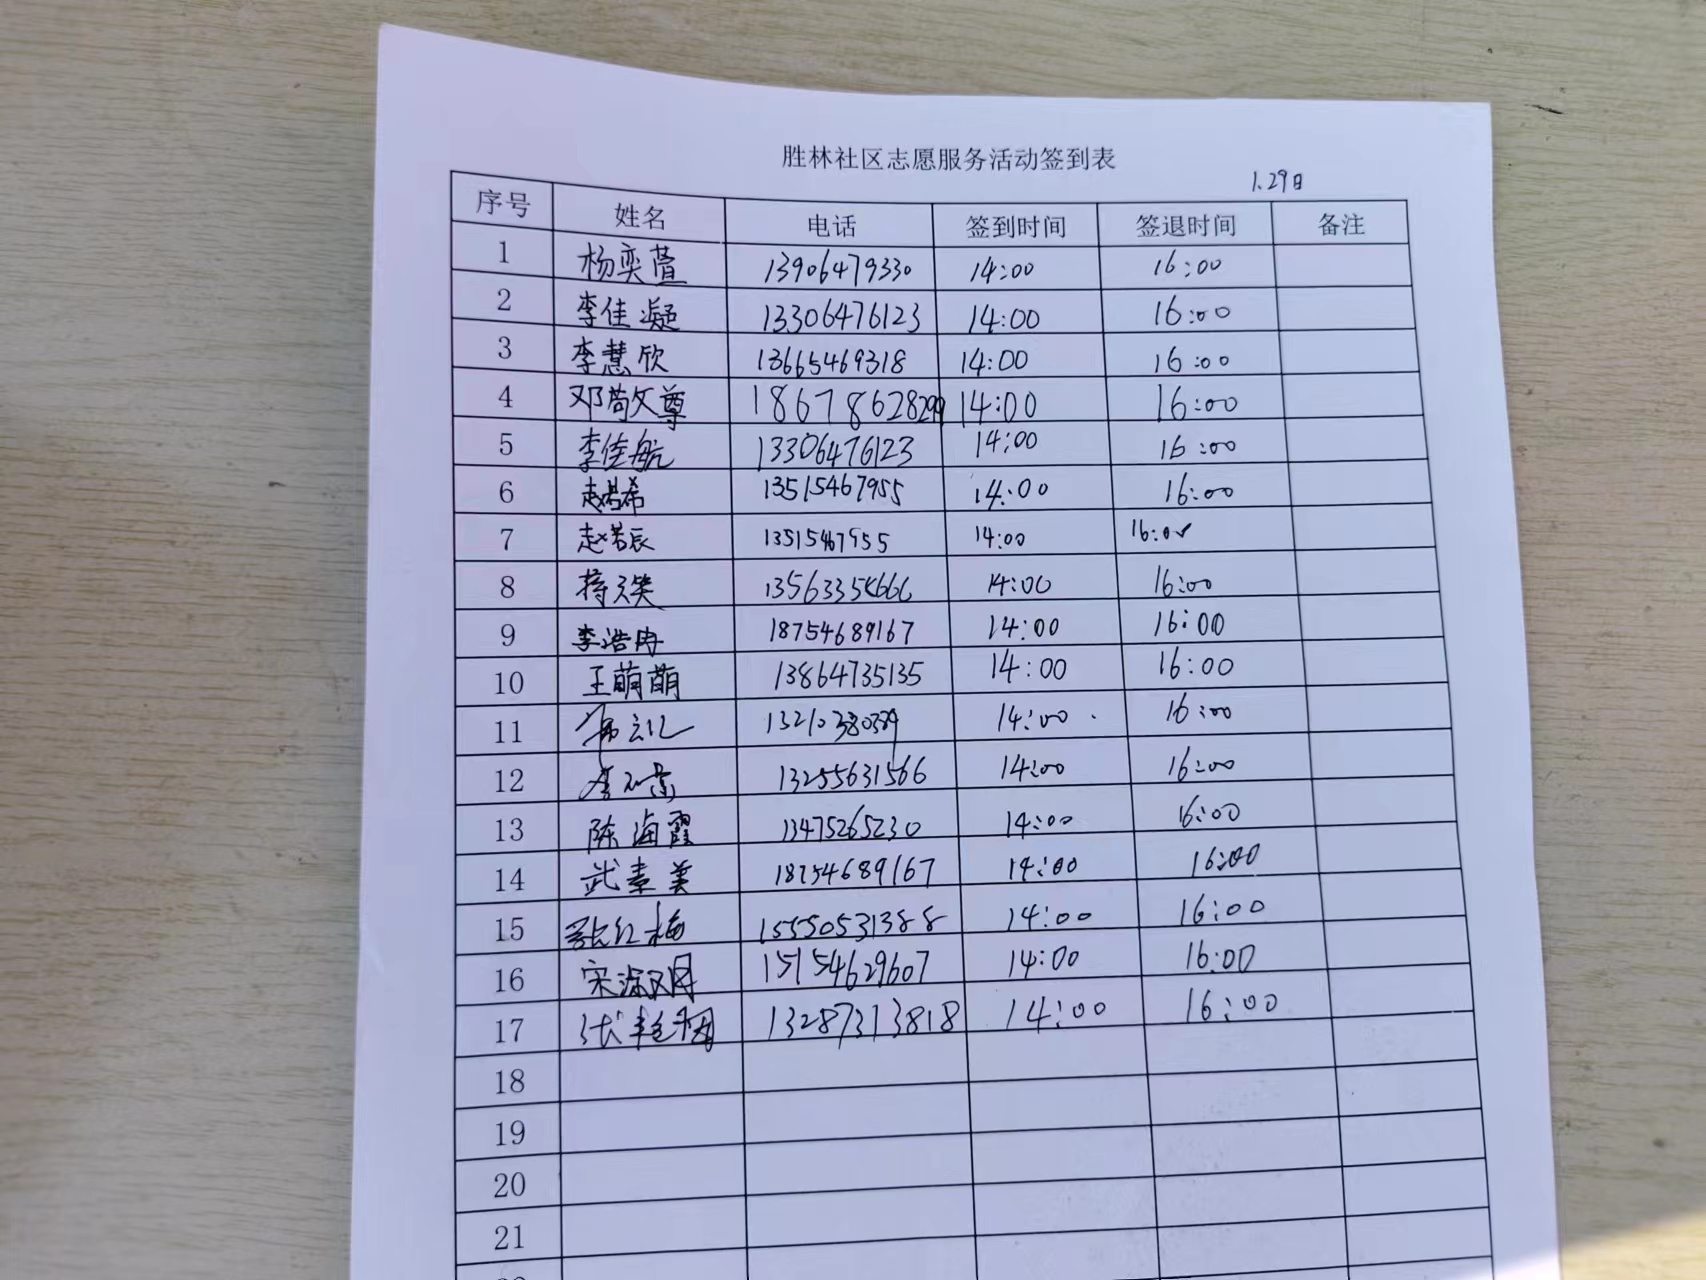 胜林社区志愿服务活动签到表
1.29日
序号 姓名 电话 签到时间 签退时间 备注
1 杨奕萱 13906479330 14:00 16:00
2 李佳凝 13306476123 14:00 16:00
3 李慧欣 13665469318 14:00 16:00
4 邓荀文尊 18678628299 14:00 16:00
5 李佳航 13306476123 14:00 16:00
6 赵若希 13515467955 14:00 16:00
7 赵若辰 13515467955 14:00 16:00
8 蒋天笑 13563354666 14:00 16:00
9 李浩冉 18754689167 14:00 16:00
10 王萌萌 13864735135 14:00 16:00
11 14:00 16:00
12 13255631566 14:00 16:00
13 陈海霞 13475265230 14:00 16:00
14 武素美 18754689167 14:00 16:00
15 张红梅 15550531388 14:00 16:00
16 宋淑明 15154629607 14:00 16:00
17 13287313818 14:00 16:00
18
19
20
21